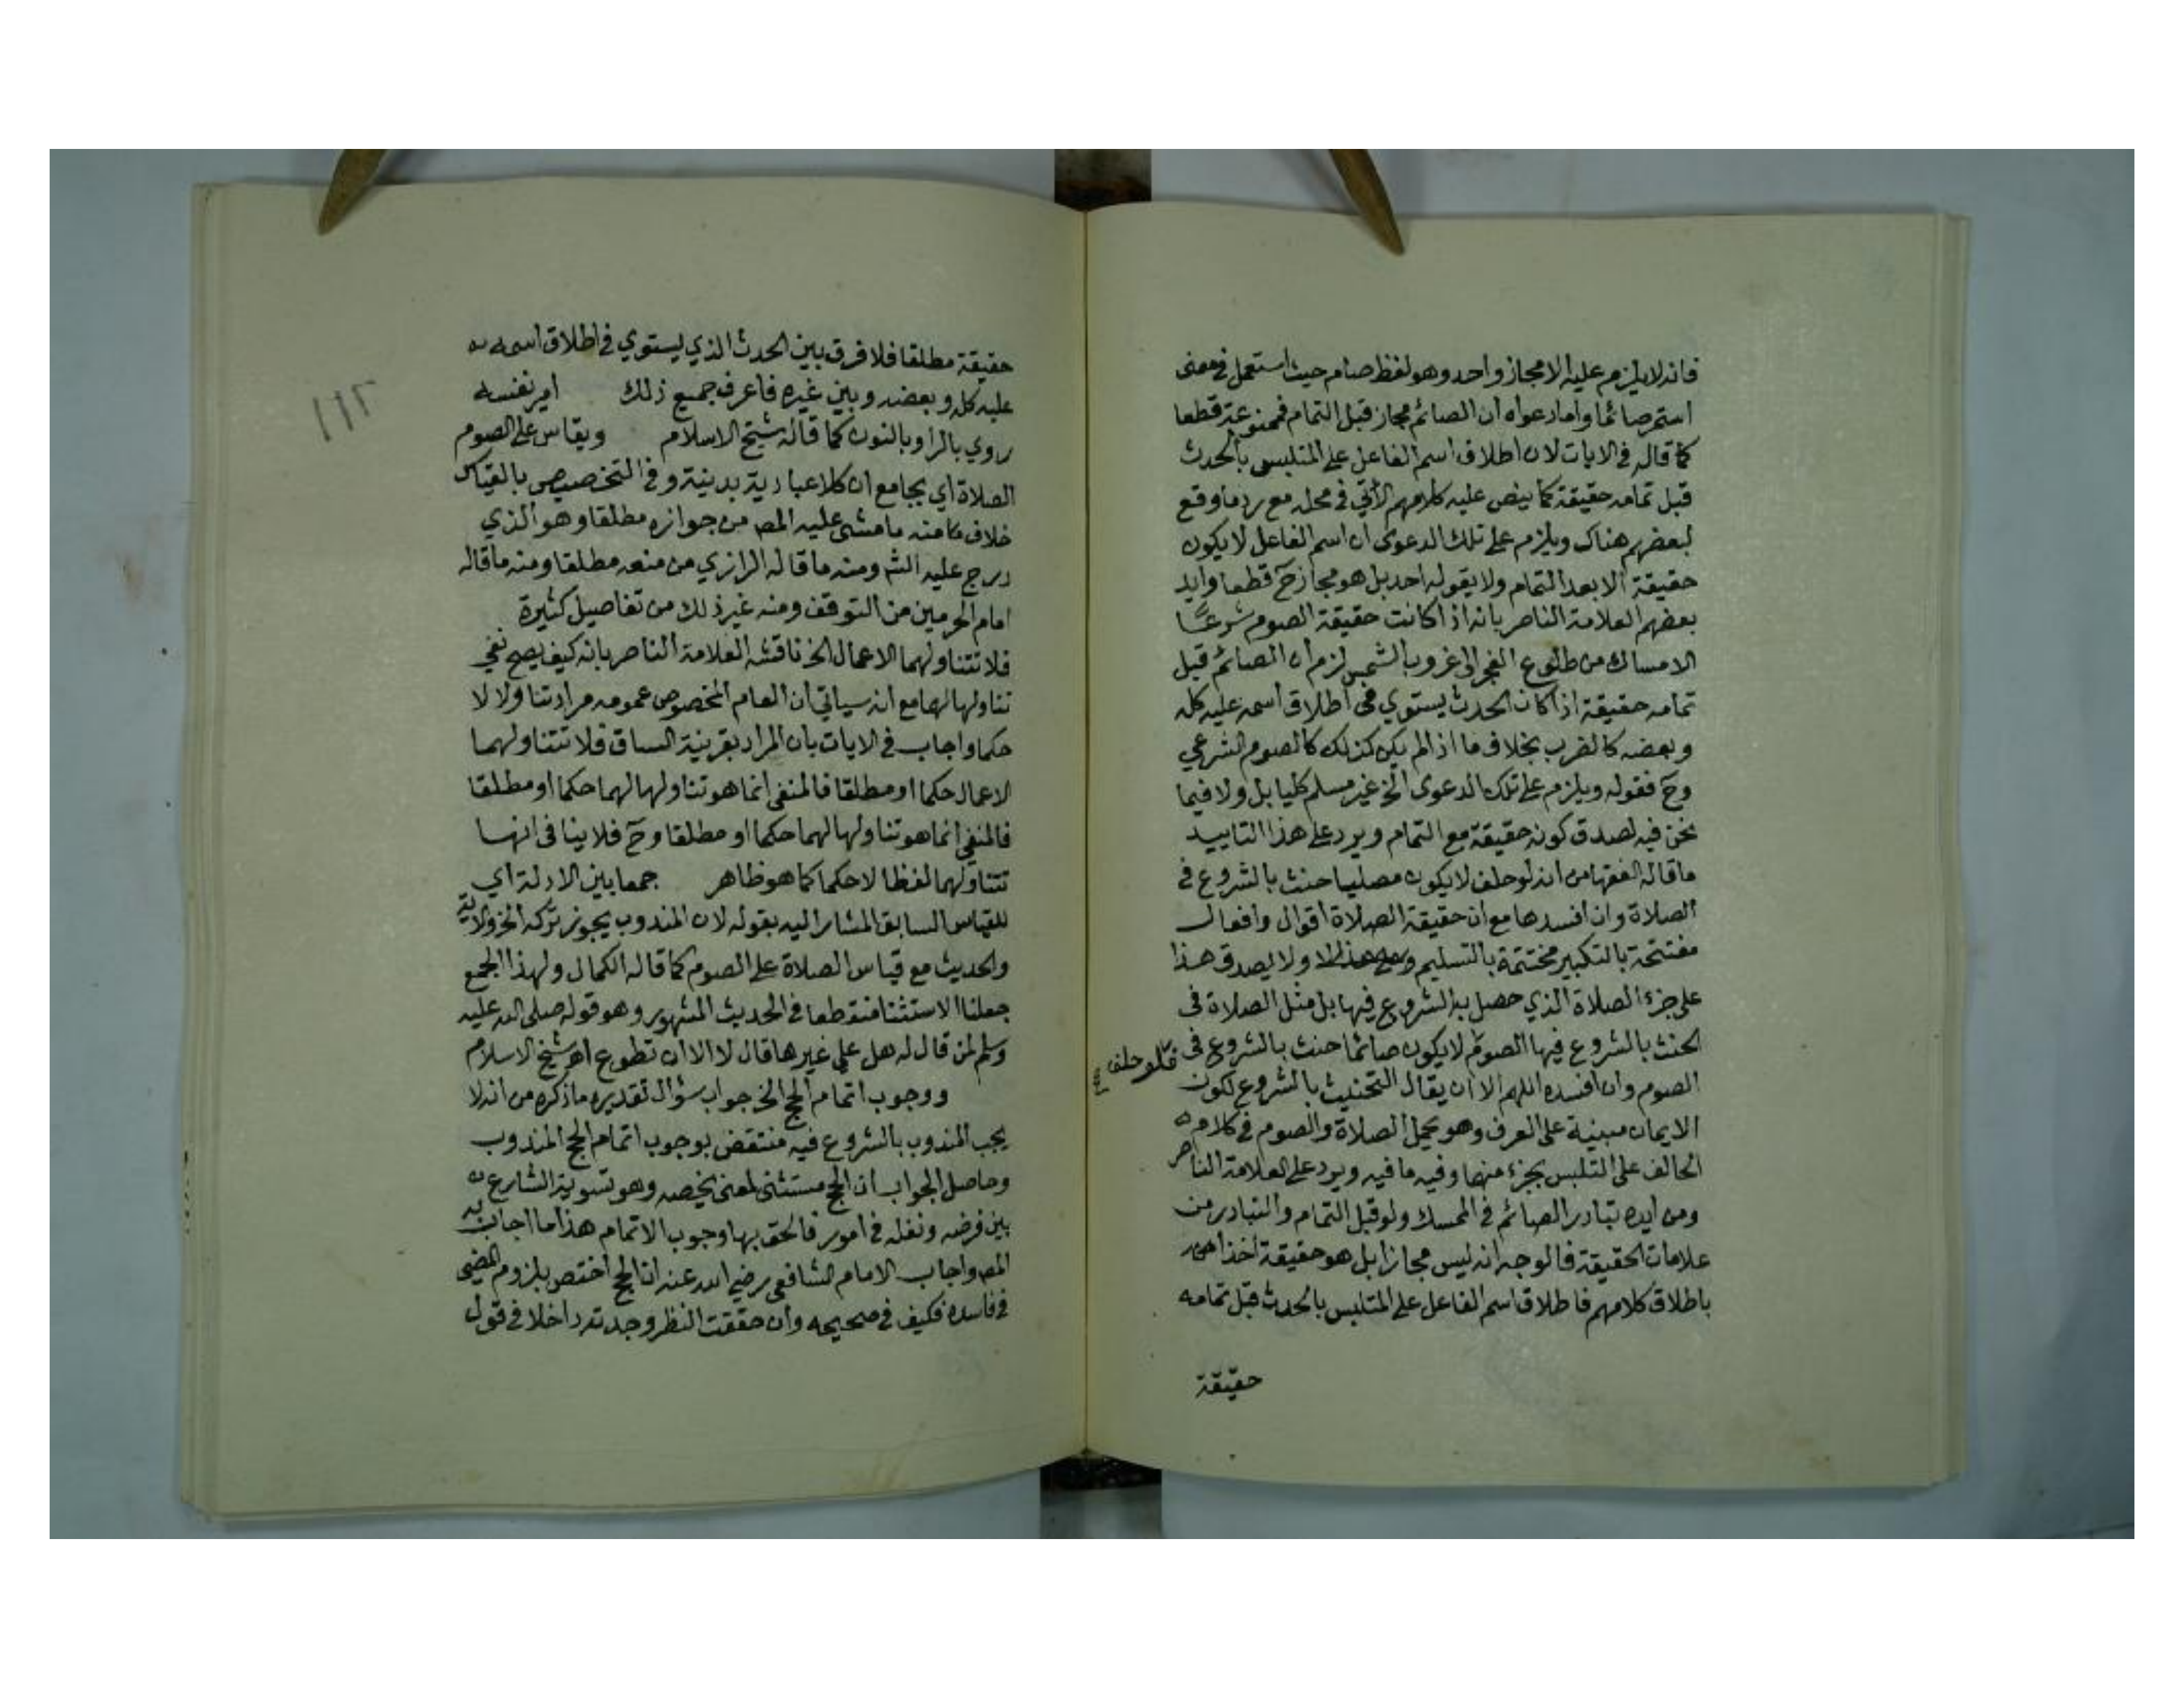 فانه لا يلزم عليه الا مجاز واحد وهو لفظ صام حيث استعمل في معنى
استمر صائما واما دعواه ان الصائم مجاز قبل التمام فممنوعة قطعا
كما قاله في الايات لان اطلاق اسم الفاعل على المتلبس بالحدث
قبل تمامه حقيقة كما ينص عليه كلامهم الآتي في محله مع رد ما وقع
لبعضهم هناك ويلزم على تلك الدعوى ان اسم الفاعل لا يكون
حقيقة الا بعد التمام ولا يقوله احد بل هو مجاز ح قطعا وايد
بعضهم العلامة الناصر بانه اذا كانت حقيقة الصوم شرعًا
الامساك من طلوع الفجر الى غروب الشمس لزم ان الصائم قبل
تمامه حقيقة اذا كان الحدث يستوي في اطلاق اسمه عليه كله
وبعضه كالضرب بخلاف ما اذا لم يكن كذلك كالصوم الشرعي
وح فقوله ويلزم على تلك الدعوى الخ غير مسلم كليا بل ولا فيما
نحن فيه لصدق كونه حقيقة مع التمام ويرد على هذا التاييد
ما قاله الفقها من انه لو حلف لا يكون مصليا حنث بالشروع في
الصلاة وان افسدها مع ان حقيقة الصلاة اقوال وافعال
مفتتحة بالتكبير مختتمة بالتسليم ولا يصدق هذا
على جزء الصلاة الذي حصل به الشروع فيها بل مثل الصلاة في
الحنث بالشروع فيها الصوم لا يكون صائما حنث بالشروع في
فلو حلف
الصوم وان افسده اللهم الا ان يقال التحنيث بالشروع لكون
الايمان مبنية على العرف وهو يحمل الصلاة والصوم في كلام
الحالف على التلبس بجزء منها وفيه ما فيه ويرد على العلامة الناصر
ومن ايده تبادر الصائم في الممسك ولو قبل التمام والتبادر من
علامات الحقيقة فالوجه انه ليس مجازا بل هو حقيقة اخذا
باطلاق كلامهم فاطلاق اسم الفاعل على المتلبس بالحدث قبل تمامه
حقيقة
١١٢
حقيقة مطلقا فلا فرق بين الحدث الذي يستوي في اطلاق اسمه
عليه كله وبعضه وبين غيره فاعرف جميع ذلك امير نفسه
روي بالرا وبالنون كما قاله شيخ الاسلام ويقاس على الصوم
الصلاة اي بجامع ان كلا عبادية بدنية وفي التخصيص بالقياس
خلاف منه ما مشى عليه المص من جوازه مطلقا وهو الذي
درج عليه الش ومنه ما قاله الرازي من منعه مطلقا ومنه ما قاله
امام الحرمين من التوقف ومنه غير ذلك من تفاصيل كثيرة
فلا تتناولهما الاعمال الخ ناقشه العلامة الناصر بانه كيف يصح نفي
تناولها لهما مع انه سياتي ان العام المخصوص عمومه مراد تناولا لا
حكما واجاب في الايات بان المراد بقرينة السباق فلا تتناولهما
الاعمال حكما او مطلقا فالمنفي انما هو تناولها لهما حكما او مطلقا
فالمنفي انما هو تناولها لهما حكما او مطلقا وح فلا ينافى انها
تتناولهما لفظا لا حكما كما هو ظاهر جمعا بين الادلة اي
للقياس السابق المشار اليه بقوله لان المندوب يجوز تركه الخ ولاية
والحديث مع قياس الصلاة على الصوم كما قاله الكمال ولهذا الجمع
جعلنا الاستثنا منقطعا في الحديث المشهور وهو قوله صلى الله عليه
وسلم لمن قال له هل علي غيرها قال لا الا ان تطوع اهر شيخ الاسلام
ووجوب اتمام الحج الخ جواب سؤال تقديره ما ذكره من انه لا
يجب المندوب بالشروع فيه منتقض بوجوب اتمام الحج المندوب
وحاصل الجواب ان الحج مستثنى لمعنى يخصه وهو تسوية الشارع
بين فرضه ونفله في امور فالحق بها وجوب الاتمام هذا ما اجاب به
المص واجاب الامام الشافعي رضي الله عنه ان الحج اختص بلزوم المضي
في فاسده فكيف في صحيحه وان حققت النظر وجدته داخلا في قول